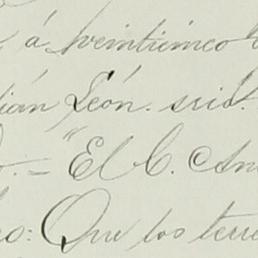 á veinticinco
dián León. srio.
"El C. An
o: Que los terre